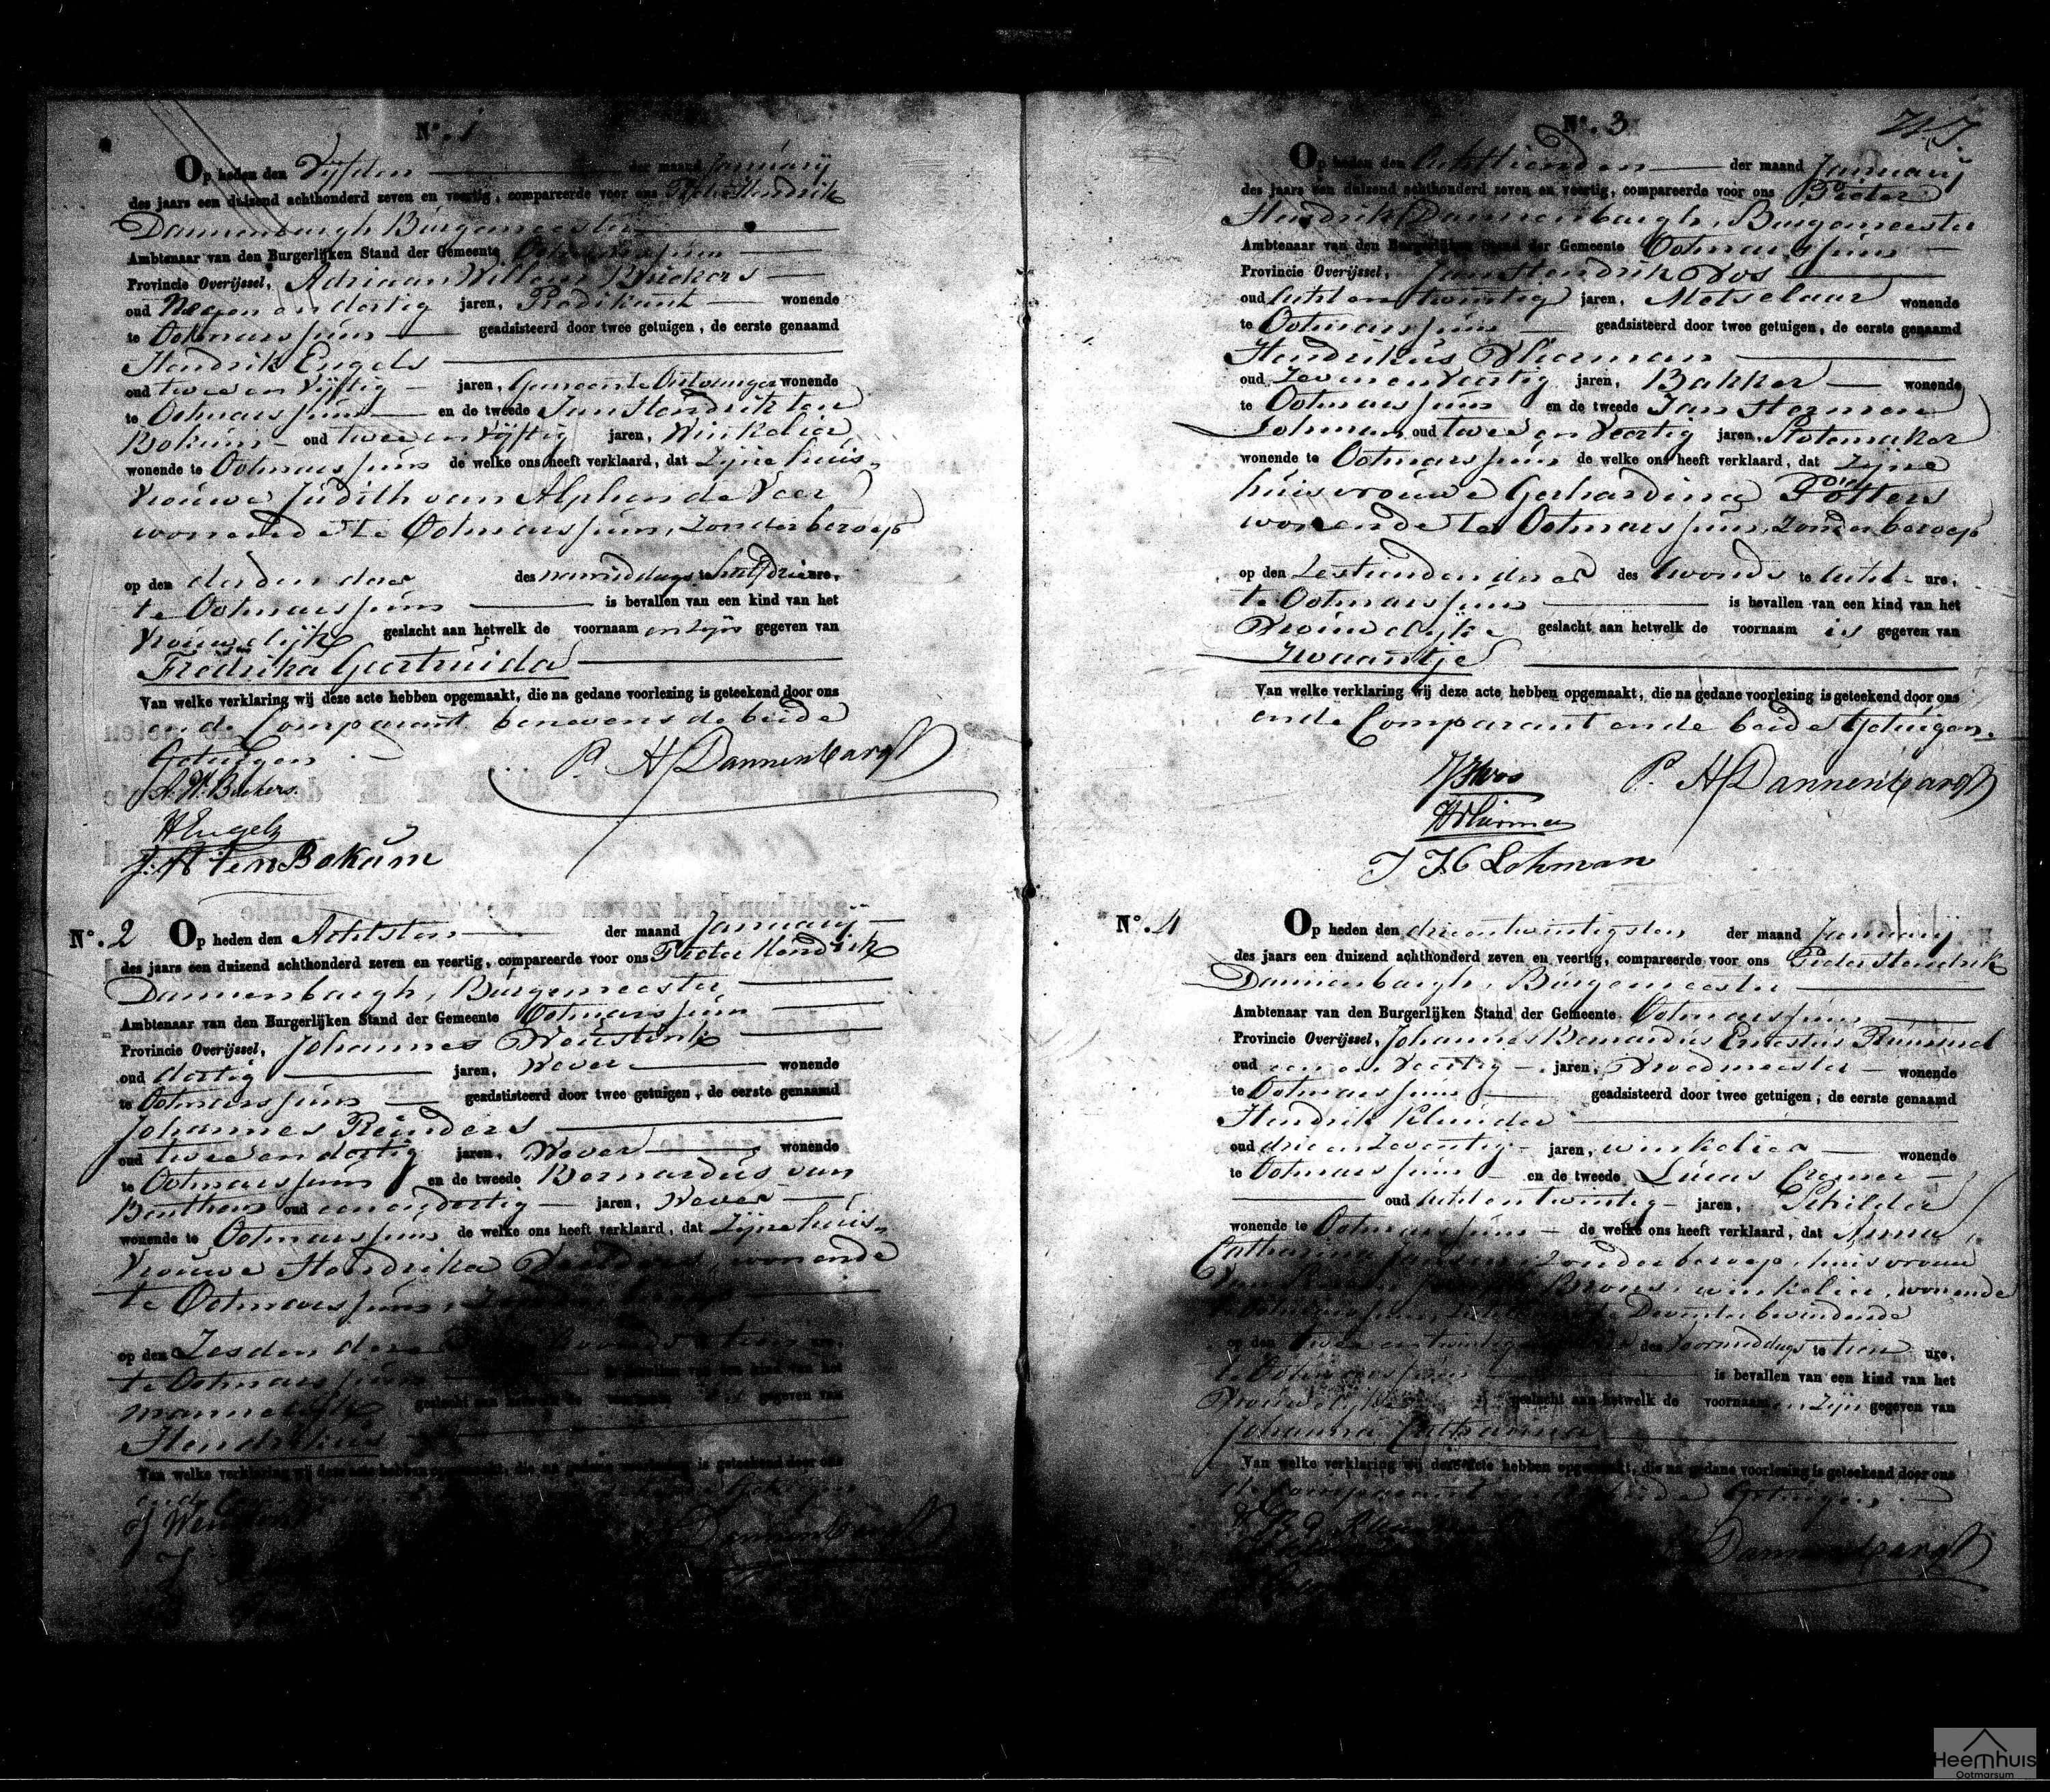 N°. 1
Op heden den Vijfden der maand Januarij
des jaars een duizend achthonderd zeven en veertig, compareerde voor ons Pieter Hendrik
Dannenbargh Burgemeester
Ambtenaar van den Burgerlijken Stand der Gemeente Ootmarssum
Provincie Overijssel, Adriaan Willem Buckers
oud Negen en dertig jaren, Predikant wonende
te Ootmarssum geadsisteerd door twee getuigen, de eerste genaamd
Hendrik Engels
oud twee en vijftig jaren, Gemeente Ontvanger wonende
te Ootmarssum en de tweede Jan Hendrik ten
Bokum oud twee en vijftig jaren, Winkelier
wonende te Ootmarssum de welke ons heeft verklaard, dat Zijne huis-
vrouwe Judith van Alphen de Veer
wonende te Ootmarssum, zonder beroep
op den derden dezer des namiddags te half drie ure,
te Ootmarssum is bevallen van een kind van het
vrouwelijke geslacht aan hetwelk de voornaam en zijn gegeven van
Fredrika Geertruida
Van welke verklaring wij deze acte hebben opgemaakt, die na gedane voorlezing is geteekend door ons
en de Comparant benevens de beide
Getuigen
P. H Dannenbargh
A. W. Buckers.
H Engels
J. H ten Bokum
N°. 2 Op heden den Achtsten der maand Januarij
des jaars een duizend achthonderd zeven en veertig, compareerde voor ons Pieter Hendrik
Dannenbargh, Burgemeester
Ambtenaar van den Burgerlijken Stand der Gemeente Ootmarssum
Provincie Overijssel, Johannes Weustink
oud dertig jaren, Wever wonende
te Ootmarssum geadsisteerd door twee getuigen, de eerste genaamd
Johannes Reinders
oud twee en dertig jaren, Wever wonende
te Ootmarssum en de tweede Bernardus van
Benthem oud een en dertig jaren, Wever
wonende te Ootmarssum de welke ons heeft verklaard, dat Zijne huis-
vrouwe Hendrika wonende
te Ootmarssum,
op den Zesden dezer des avonds tien ure,
te Ootmarssum is bevallen van een kind van het
mannelijke geslacht aan hetwelk de voornaam is gegeven van
Hendrikus
Van welke verklaring wij deze acte hebben opgemaakt, die na gedane voorlezing is geteekend door ons
en de Getuigen
Dannenbargh
N°. 3
Op heden den Achttienden der maand Januarij
des jaars een duizend achthonderd zeven en veertig, compareerde voor ons Pieter
Hendrik Dannenbargh, Burgemeester
Ambtenaar van den Burgerlijken Stand der Gemeente Ootmarssum
Provincie Overijssel, Jan Hendrik Vos
oud Acht en twintig jaren, Metselaar wonende
te Ootmarssum geadsisteerd door twee getuigen, de eerste genaamd
Hendrikus
oud Zeven en veertig jaren, Bakker wonende
te Ootmarssum en de tweede Jan Herman
Lohman oud twee en veertig jaren, Slotemaker
wonende te Ootmarssum de welke ons heeft verklaard, dat Zijne
huisvrouwe Gerhardina Potters
wonende te Ootmarssum, zonder beroep
op den Zestienden dezer des Avonds te Acht ure,
te Ootmarssum is bevallen van een kind van het
Vrouwelijke geslacht aan hetwelk de voornaam is gegeven van
Zwaantje
Van welke verklaring wij deze acte hebben opgemaakt, die na gedane voorlezing is geteekend door ons
en de Comparant en de beide Getuigen.
P. H Dannenbargh
J H Lohman
N°. 4 Op heden den drieentwintigsten der maand Januarij
des jaars een duizend achthonderd zeven en veertig, compareerde voor ons Pieter Hendrik
Dannenbargh, Burgemeester
Ambtenaar van den Burgerlijken Stand der Gemeente Ootmarssum
Provincie Overijssel, Johannes Bernardus Ernestus
oud een en veertig jaren, Vroedmeester wonende
te Ootmarssum geadsisteerd door twee getuigen, de eerste genaamd
Hendrik Klunder
oud drie en Zeventig jaren, winkelier wonende
te Ootmarssum en de tweede Lucas Cremer
oud Acht en twintig jaren, Schilder
wonende te Ootmarssum de welke ons heeft verklaard, dat Anna
Catharina Jansen, zonder beroep, huisvrouw
winkelier, wonende
Deventer bevindende
op den twee en twintigsten des voormiddags te tien ure,
te Ootmarssum is bevallen van een kind van het
Vrouwelijke geslacht aan hetwelk de voornaam en zijn gegeven van
Johanna Catharina
Van welke verklaring wij deze acte hebben opgemaakt, die na gedane voorlezing is geteekend door ons
de Comparant en de beide Getuigen.
Dannenbargh
Heemhuis
Ootmarsum